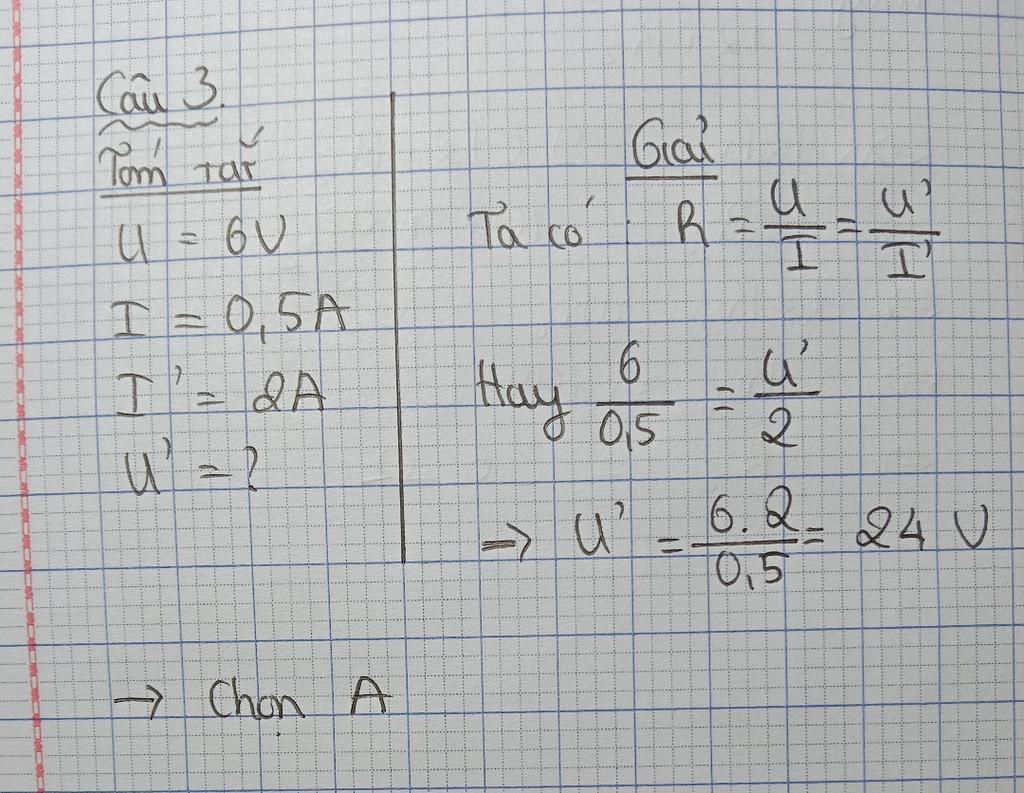 Câu 3.
Tóm tắt
U = 6V
I = 0,5A
I' = 2A
U' = ?
Giải
Ta có : R = U/I = U'/I'
Hay 6/0,5 = U'/2
=> U' = 6.2/0,5 = 24 V
→ Chọn A